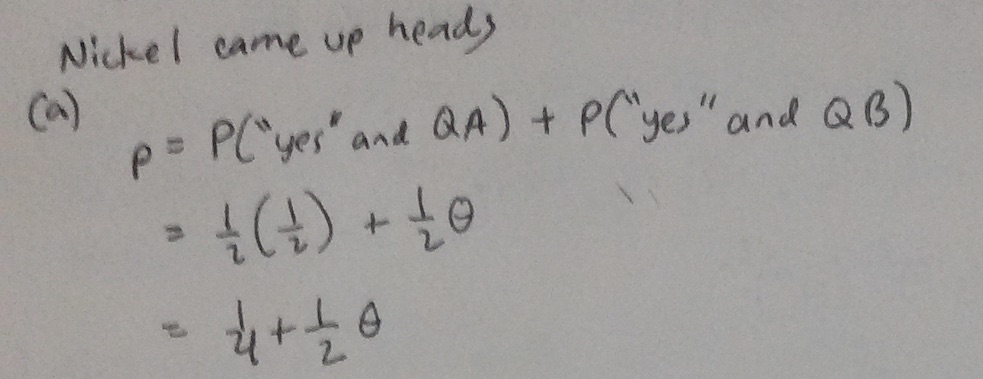 Nickel came up heads
(a)
p = P("yes" and QA) + P("yes" and QB)
= 1/2 (1/2) + 1/2 θ
= 1/4 + 1/2 θ